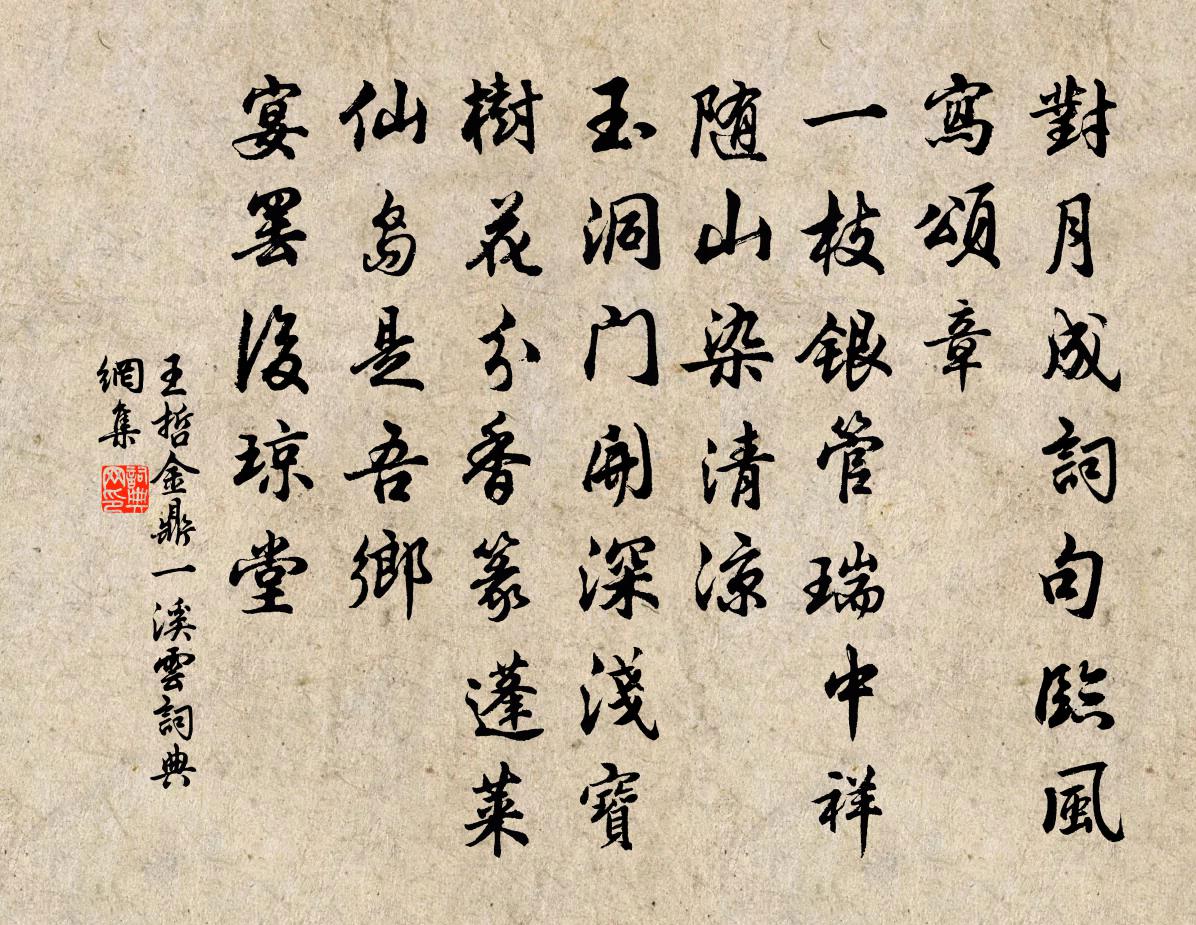 對月成詞句臨風
寫頌章
一枝銀管瑞中祥
随山染清涼
玉洞门開深淺寶
樹花分香篆蓬萊
仙島是吾鄉
宴罷後瓊堂
王哲金鼎一溪雲詞典
網集
詞典
网印